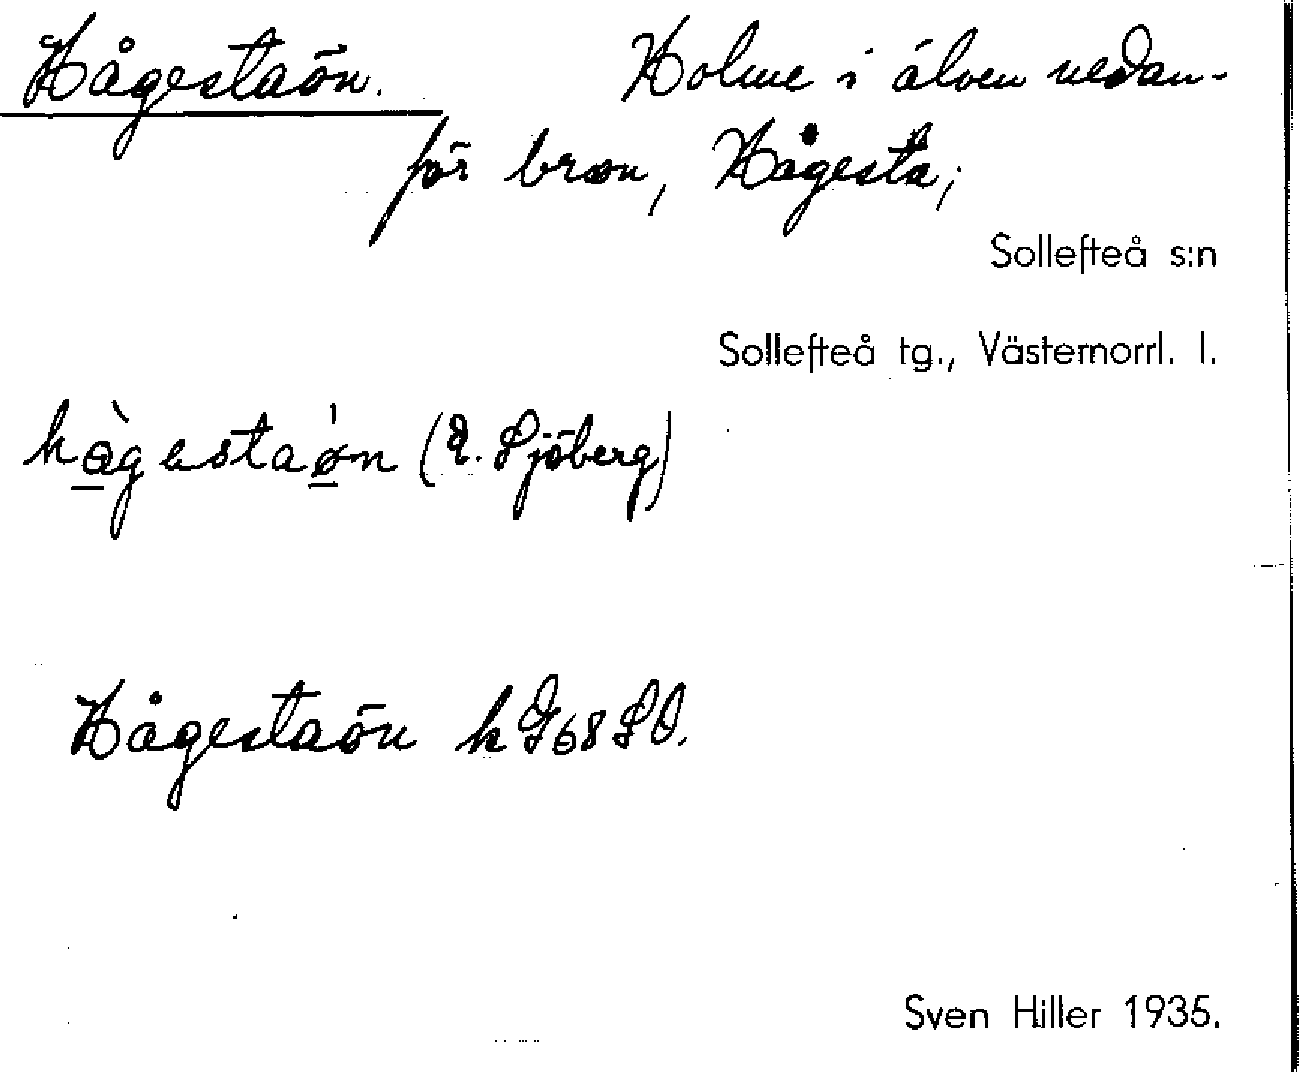 Hågestaön. Holme i älven nedan-
för bron, Hågesta;
Sollefteå s:n
Sollefteå tg., Västernorrl. l.
hågestaøn (E. Sjöberg)
Hågestaön k G68SO.
Sven Hiller 1935.